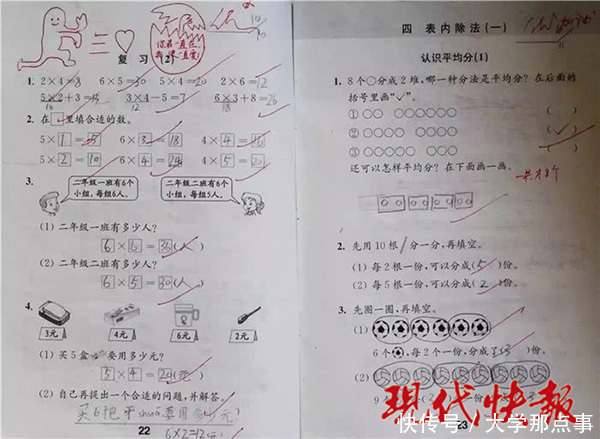 三
复 习 (2)
1. 2×4=8 6×5=30 5×4=20 2×6=12
5×2+3=13 3×4-5=7 6×3+8=26
10 12 18
2. 在□里填合适的数。
5×1=5 6×3=18 4×4=16
5×2=10 6×4=24 4×5=20
3.
二年级一班有6个
小组,每组6人。
二年级二班有6个
小组,每组5人。
(1) 二年级一班有多少人?
6×6=36(人)
(2) 二年级二班有多少人?
6×5=30(人)
4.
3元 4元 6元 2元
(1) 买5盒 要用多少元?
5×4=20(元)
(2) 自己再提出一个合适的问题,并解答。
买6把牙shuā要用多少元?
6×2=12(元)
22
四 表内除法(一)
认识平均分(1)
1. 8个○分成2堆,哪一种分法是平均分?在后面的
括号里画“✓”。
① ○○ ○○○○○○ ( )
② ○○○○ ○○○○ (✓)
③ ○○○ ○○○○○ ( )
还可以怎样平均分?在下面画一画。
一共才8个
2. 先用10根/分一分,再填空。
(1) 每2根一份,可以分成(5)份。
(2) 每5根一份,可以分成(2)份。
3. 先圈一圈,再填空。
(1)
6个 ,每2个一份,分成了(3)份。
(2)
9
23
现代快报
快传号/大学那点事